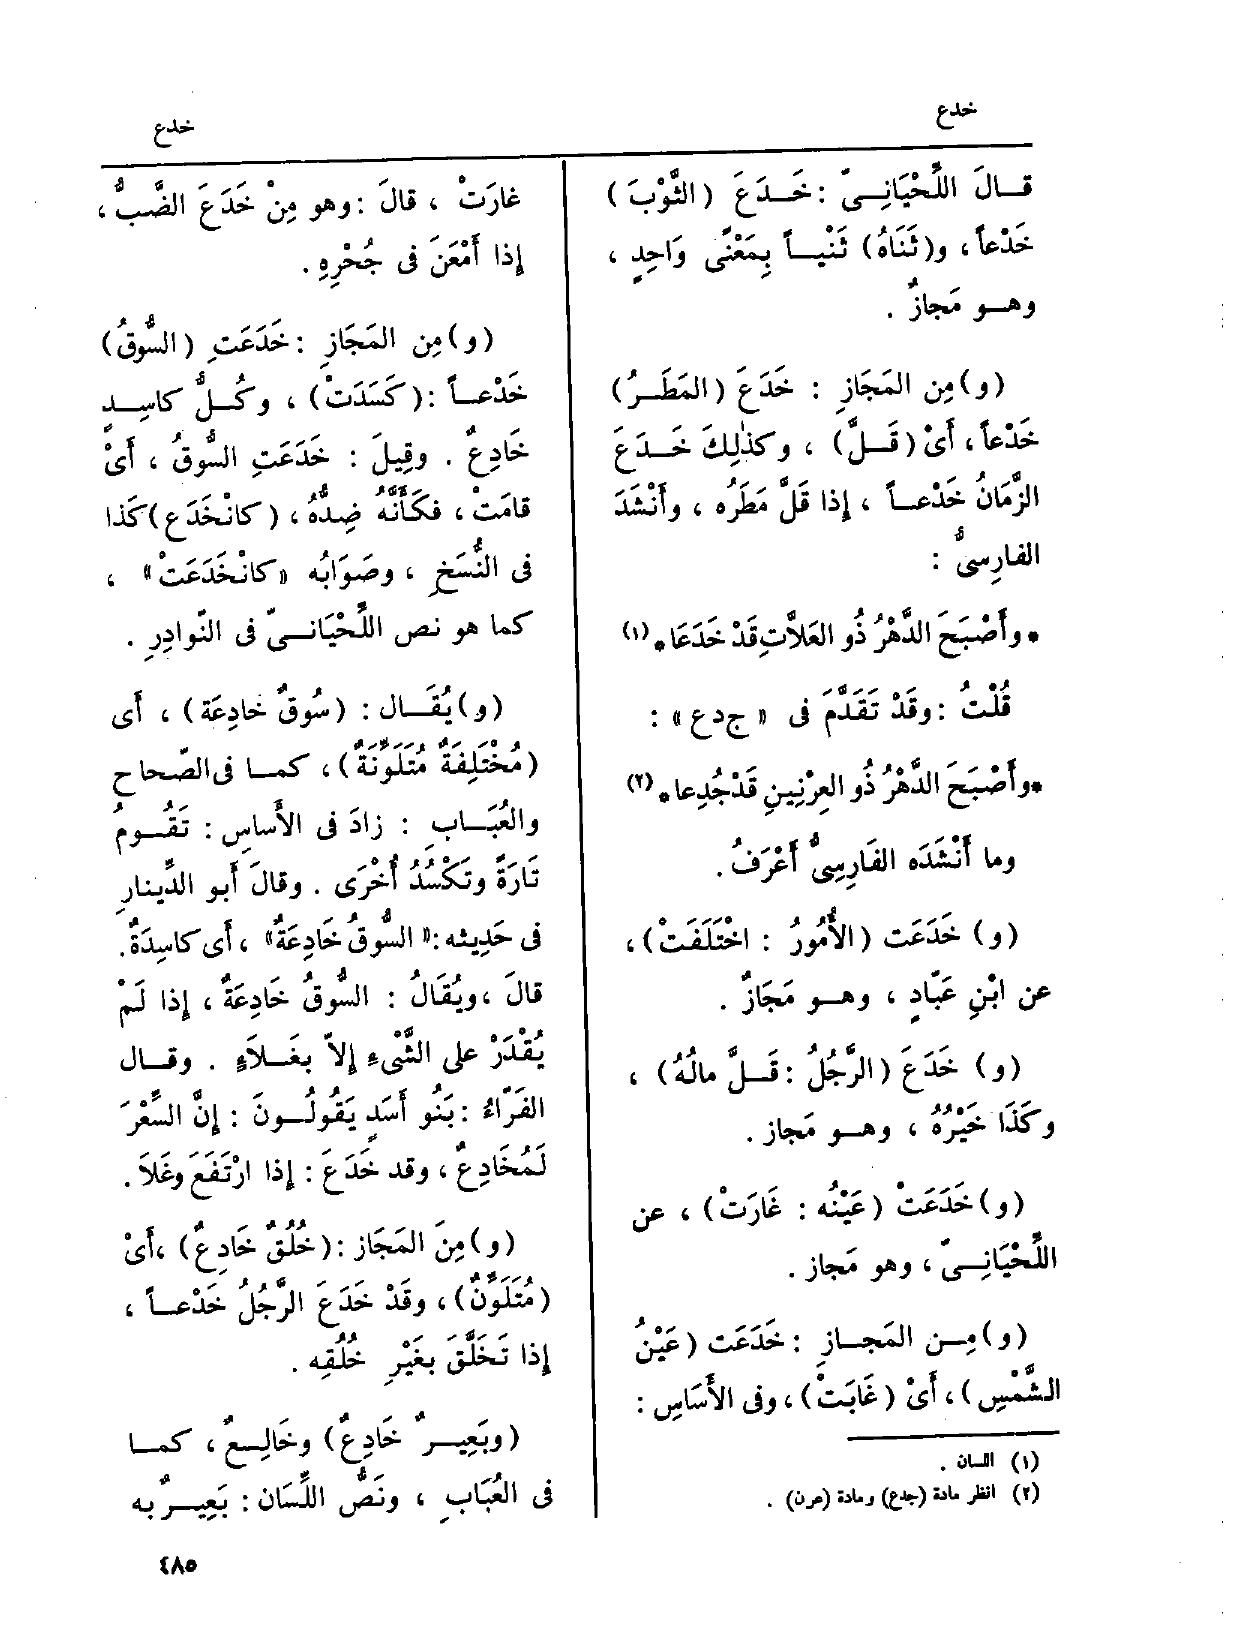 خدع
خدع
قــالَ اللِّحْيَانِــىّ : خَــدَعَ (الثَّوْبَ)
خَدْعاً ، و(ثَنَاهُ) ثَنْيــاً بِمَعْنًى وَاحِدٍ ،
وهــو مَجازٌ .
(و) مِن المَجَازِ : خَدَعَ (المَطَــرُ)
خَدْعاً ، أَىْ (قَــلَّ) ، وكذٰلِكَ خَــدَعَ
الزَّمَانُ خَدْعــاً ، إِذا قَلَّ مَطَرُه ، وأَنْشَدَ
الفارِسىُّ :
* وأَصْبَحَ الدَّهْرُ ذُو العَلاَّتِ قَدْ خَدَعَا * (١)
قُلْتُ : وقَدْ تَقَدَّمَ فى « ج د ع » :
* وأَصْبَحَ الدَّهْرُ ذُو العِرْنِينِ قَدْ جُدِعا * (٢)
وما أَنْشَدَه الفَارِسِىُّ أَعْرَفُ .
(و) خَدَعَت (الأُمُورُ : اخْتَلَفَتْ) ،
عن ابْنِ عَبّادٍ ، وهــو مَجَازٌ .
(و) خَدَعَ (الرَّجُلُ : قَــلَّ مالُهُ) ،
وكَذَا خَيْرُهُ ، وهــو مَجاز .
(و) خَدَعَتْ (عَيْنُه : غَارَتْ) ، عن
اللِّحْيَانِــىّ ، وهو مَجاز .
(و) مِــن المَجــازِ : خَدَعَت (عَيْنُ
الشَّمْسِ) ، أَىْ (غَابَتْ) ، وفى الأَسَاسِ :
(١) اللسان .
(٢) انظر مادة (جدع) ومادة (عرن) .
غارَتْ ، قالَ : وهو مِنْ خَدَعَ الضَّبُّ ،
إِذا أَمْعَنَ فى جُحْرِهِ .
(و) مِن المَجَازِ : خَدَعَتِ (السُّوقُ)
خَدْعــاً : (كَسَدَتْ) ، وكُــلُّ كاسِــدٍ
خَادِعٌ . وقِيلَ : خَدَعَتِ السُّوقُ ، أَىْ
قامَتْ ، فكَأَنَّهُ ضِدٌّ ، (كانْخَدَع) كَذا
فى النُّسَخِ ، وصَوَابُه « كانْخَدَعَتْ » ،
كما هو نص اللِّحْيَانــىّ فى النَّوادِرِ .
(و) يُقَــال : (سُوقٌ خادِعَة) ، أَى
(مُخْتَلِفَةٌ مُتَلَوِّنَةٌ) ، كمــا فى الصّحاح
والعُبَــابِ : زادَ فى الأَساسِ : تَقُــومُ
تَارَةً وتَكْسُدُ أُخْرَى . وقالَ أَبو الدِّينارِ
فى حَدِيثه : « السُّوقُ خَادِعَةٌ » ، أَى كاسِدَةٌ .
قالَ ، ويُقَالُ : السُّوقُ خَادِعَةٌ ، إِذا لَمْ
يُقْدَرْ على الشَّىءِ إِلاّ بغَــلاَءٍ . وقــال
الفَرّاءُ : بَنُو أَسَدٍ يَقُولُــونَ : إِنَّ السِّعْرَ
لَمُخَادِعٌ ، وقد خَدَعَ : إِذا ارْتَفَعَ وغَلاَ .
(و) مِنَ المَجَاز : (خُلُقٌ خَادِعٌ) ، أَىْ
(مُتَلَوِّنٌ) ، وقَدْ خَدَعَ الرَّجُلُ خَدْعــاً ،
إِذا تَخَلَّقَ بغَيْرِ خُلُقِه .
(وبَعِيــرٌ خَادِعٌ) وخَالِــعٌ ، كمــا
فى العُبَابِ ، ونَصُّ اللِّسَان : بَعِيــرٌ به
٤٨٥